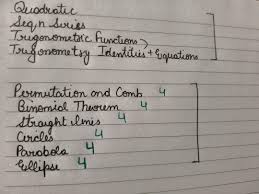 Quadratic
Seq,n Series
Trigonometric Functions
Trigonometry Identities + Equations
Permutation and Comb 4
Binomial Theorem 4
Straight lines 4
Circles 4
Parabola 4
Ellipse 4